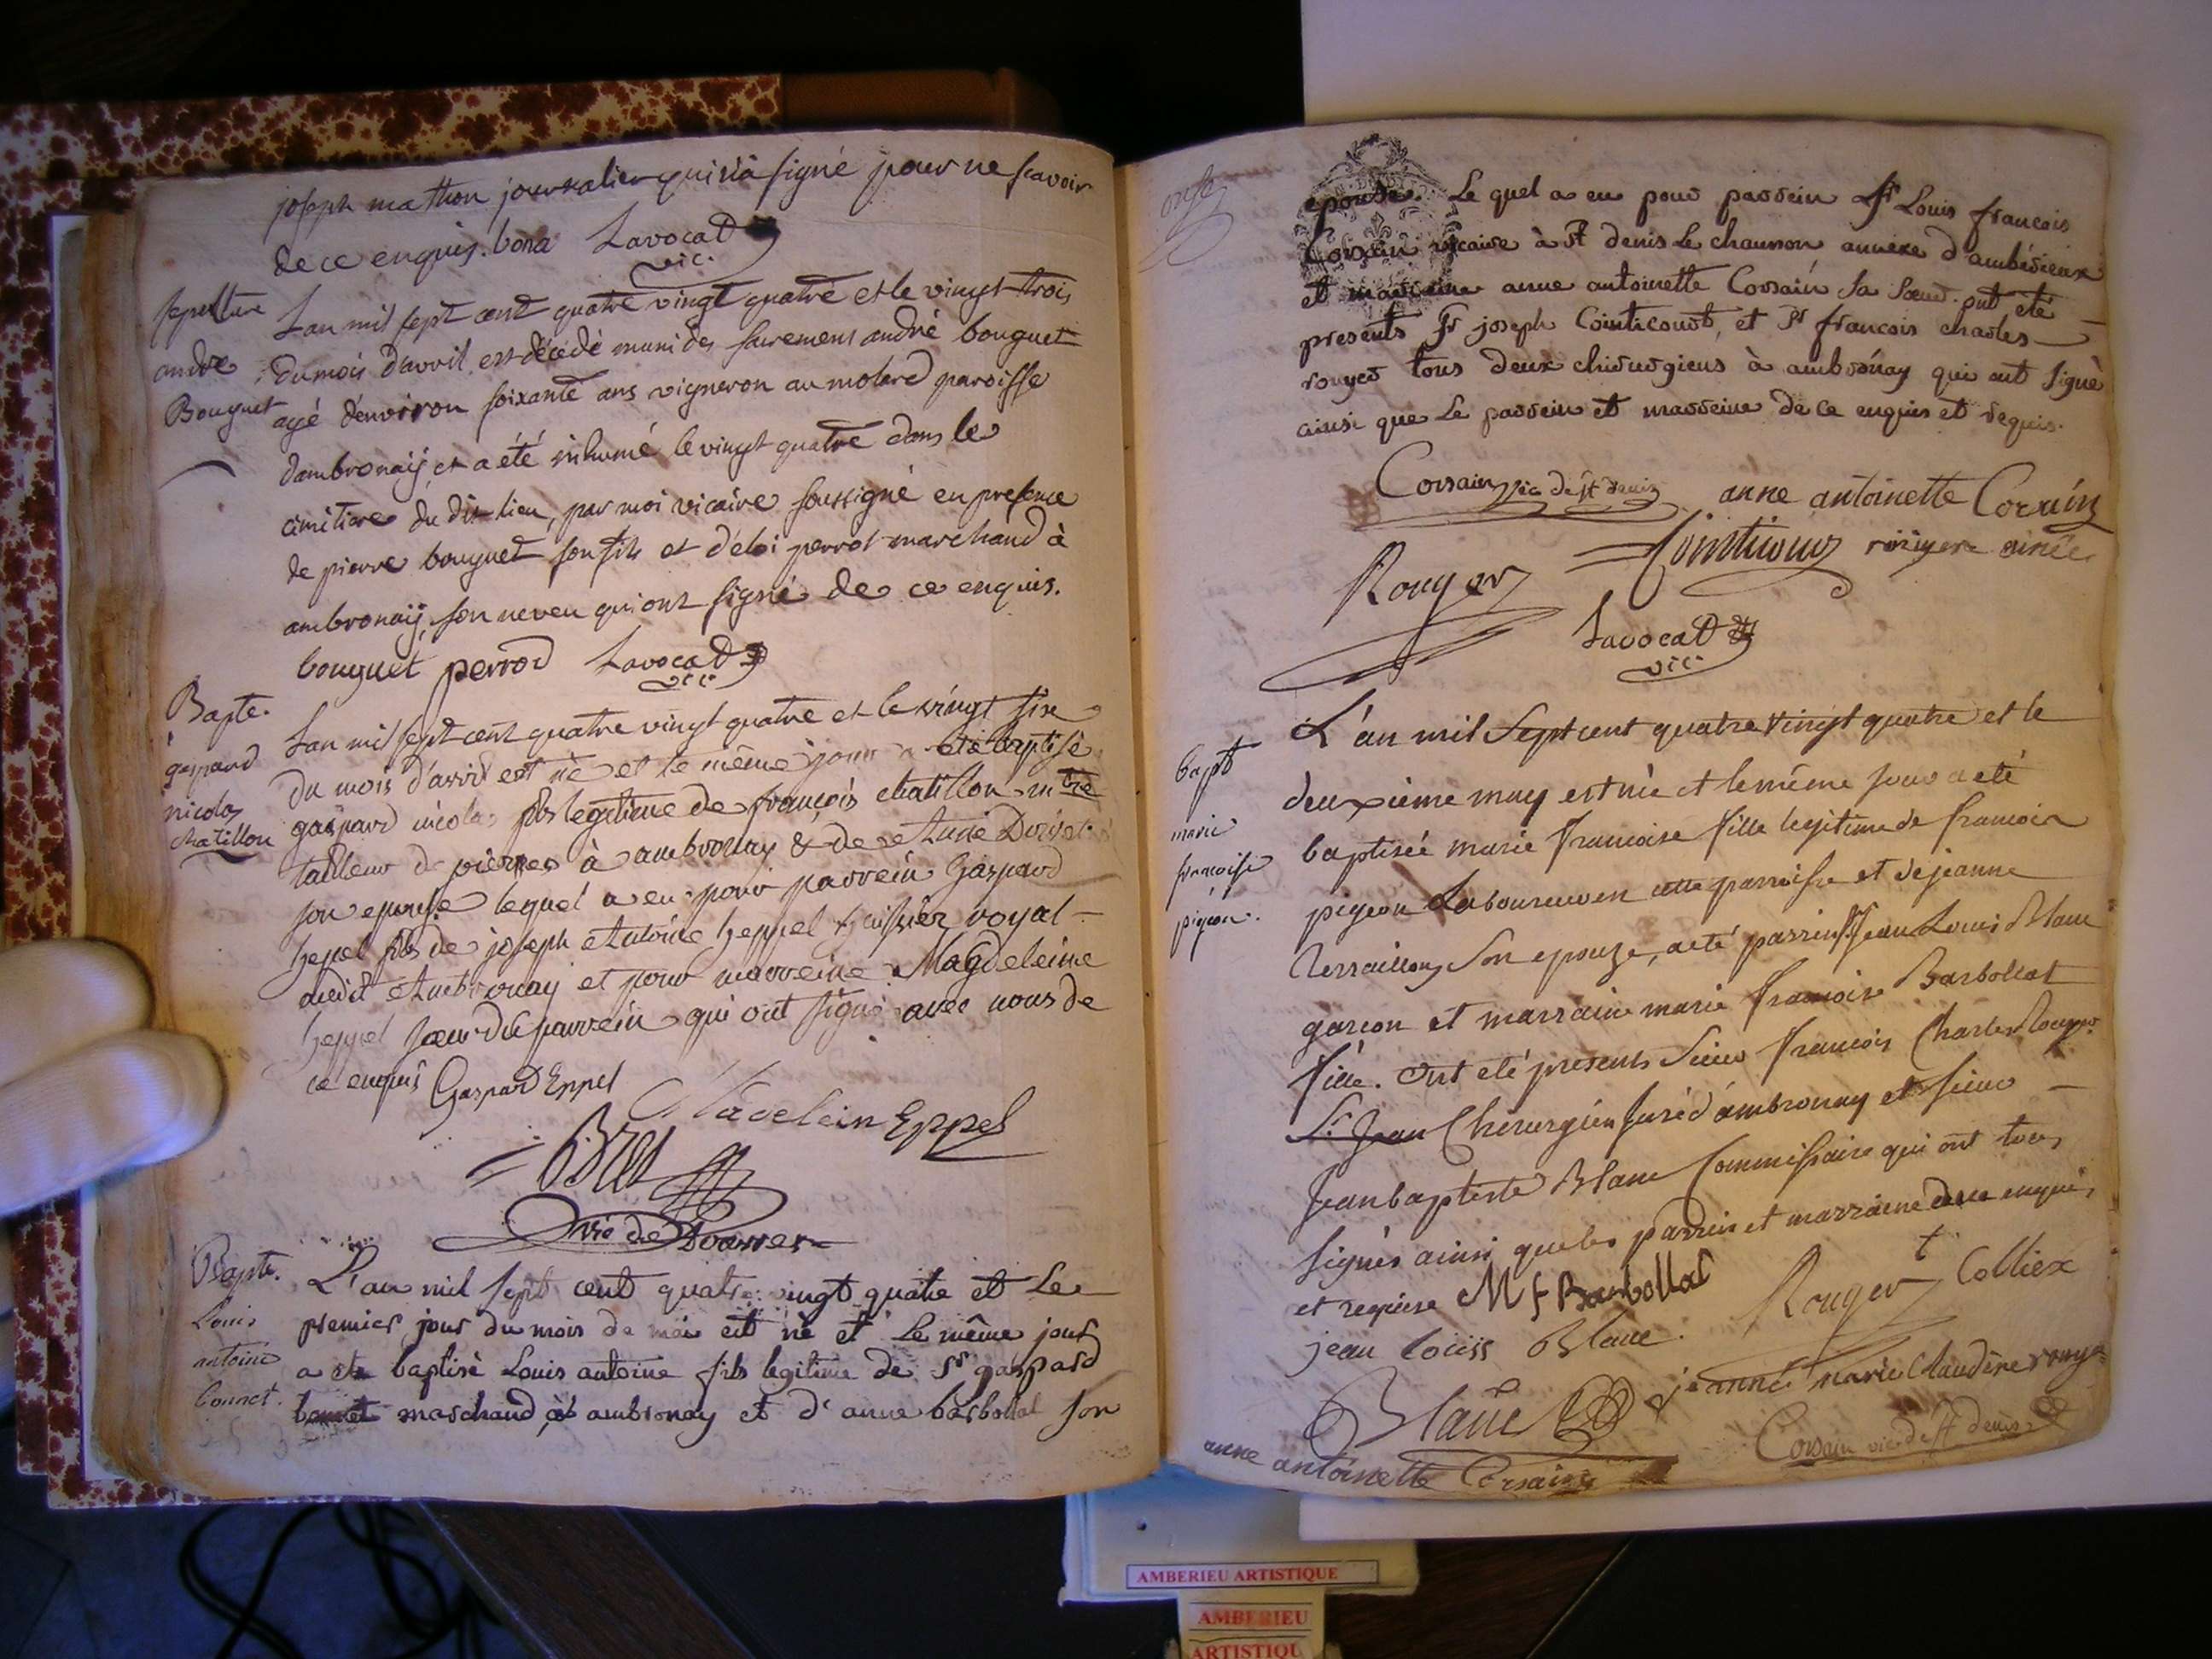 joseph mathon journalier qui n'a signé pour ne scavoir
de ce enquis. bona Lavocat
vic.
sepulture
andre
Bouguet
L'an mil sept cent quatre vingt quatre et le vingt trois
du mois d'avril est décédé muni des sacremens andré bouguet
agé d'environ soixante ans vigneron au molard paroisse
dambronaij, et a été inhumé le vingt quatre dans le
cimitiere du dit lieu, par moi vicaire soussigné en presence
de pierre bouguet son fils et d'eloi perrot marchand à
ambronaij, son neveu qui ont signé de ce enquis.
bouguet perrod Lavocat
vic.
Bapte.
gaspard
nicolas
chatillon
L'an mil sept cent quatre vingt quatre et le vingt six
du mois d'avril est né et le même jour a été baptisé
gaspard nicolas fils legitime de françois chatillon m tre
tailleur de pierres à ambronay & de
son epouse lequel a eu pour parrein Gaspard
heppel fils de joseph Antoine heppel huissier royal
audit Ambronay et pour marreine Magdeleine
heppel soeur du parrein qui ont signé avec nous de
ce enquis Gaspard Eppel
Madelein Eppel
Bret
vic de Douvres
Bapte.
Louis
antoine
bonnet.
L'an mil sept cent quatre vingt quatre et Le
premier jour du mois de mai est né et Le même jour
a ete baptisé Louis antoine fils legitime de Sr gaspard
bonnet marchand, à ambronay et d'anne barbollat son
onze
epouse. Le quel a eu pour parrein Sr Louis francois
Corsain vicaire à St denis Le chausson annexe d'ambérieux
et marreine anne antoinette Corsain sa soeur. ont été
presents Sr joseph Cointicourt, et Sr francois charles
rouyer tous deux chirurgiens à ambronay qui ont signé
ainsi que Le parrein et marreine de ce enquis et requis.
Corsain vic de St denis anne antoinette Corsain
Rouyer ainée
Lavocat
vic.
bapt
marie
francoise
pigeon.
L'an mil Sept cent quatre vingt quatre et le
deuxieme may est née et le même jour a eté
baptisée marie francoise fille legitime de francois
pigeon laboureur en cette parroisse et de jeanne
Terraillon, Son epouze, a eté parrein Sr Jean Louis Blanc
garcon et marraine marie francoise Barbollat
fille. ont eté presents Sieur francois Charles Rouyer
St. Jean Chirurgien Juré d'ambronay et Sieur
Jean baptiste Blanc Commissaire qui ont tous
signés ainsi que les parrein et marraine de ce enquis
et requise M f Barbollat Rouyer Colliex
jean louiss Blanc.
Blanc jeanne marie Claudine rouyer
anne antoinette Corsain Corsain vic de St denis
AMBERIEU ARTISTIQUE
AMBERIEU
ARTISTIQU